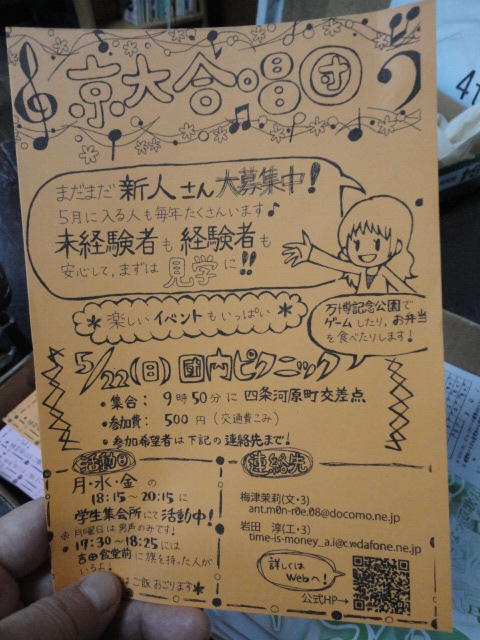 京大合唱団
まだまだ新人さん大募集中!
5月に入る人も毎年たくさんいます♪
未経験者も経験者も
安心して、まずは見学に!!
*楽しいイベントもいっぱい*
万博記念公園で
ゲームしたり、お弁当
を食べたりします!
5/22(日)団内ピクニック
•集合: 9時50分に四条河原町交差点
•参加費: 500円(交通費こみ)
•参加希望者は下記の連絡先まで!
活動日
月・水・金の
18:15~20:15に
学生集会所にて活動中!
※月曜日は男声のみです!
•17:30~18:25には
吉田食堂前に旗を持った人が
いるよ!
はご飯おごります
連絡先
梅津茉莉(文・3)
ant.m0n-r0e.08@docomo.ne.jp
岩田 淳(工・3)
time-is-money_a.i@c.vodafone.ne.jp
詳しくは
Webへ!
公式HP→